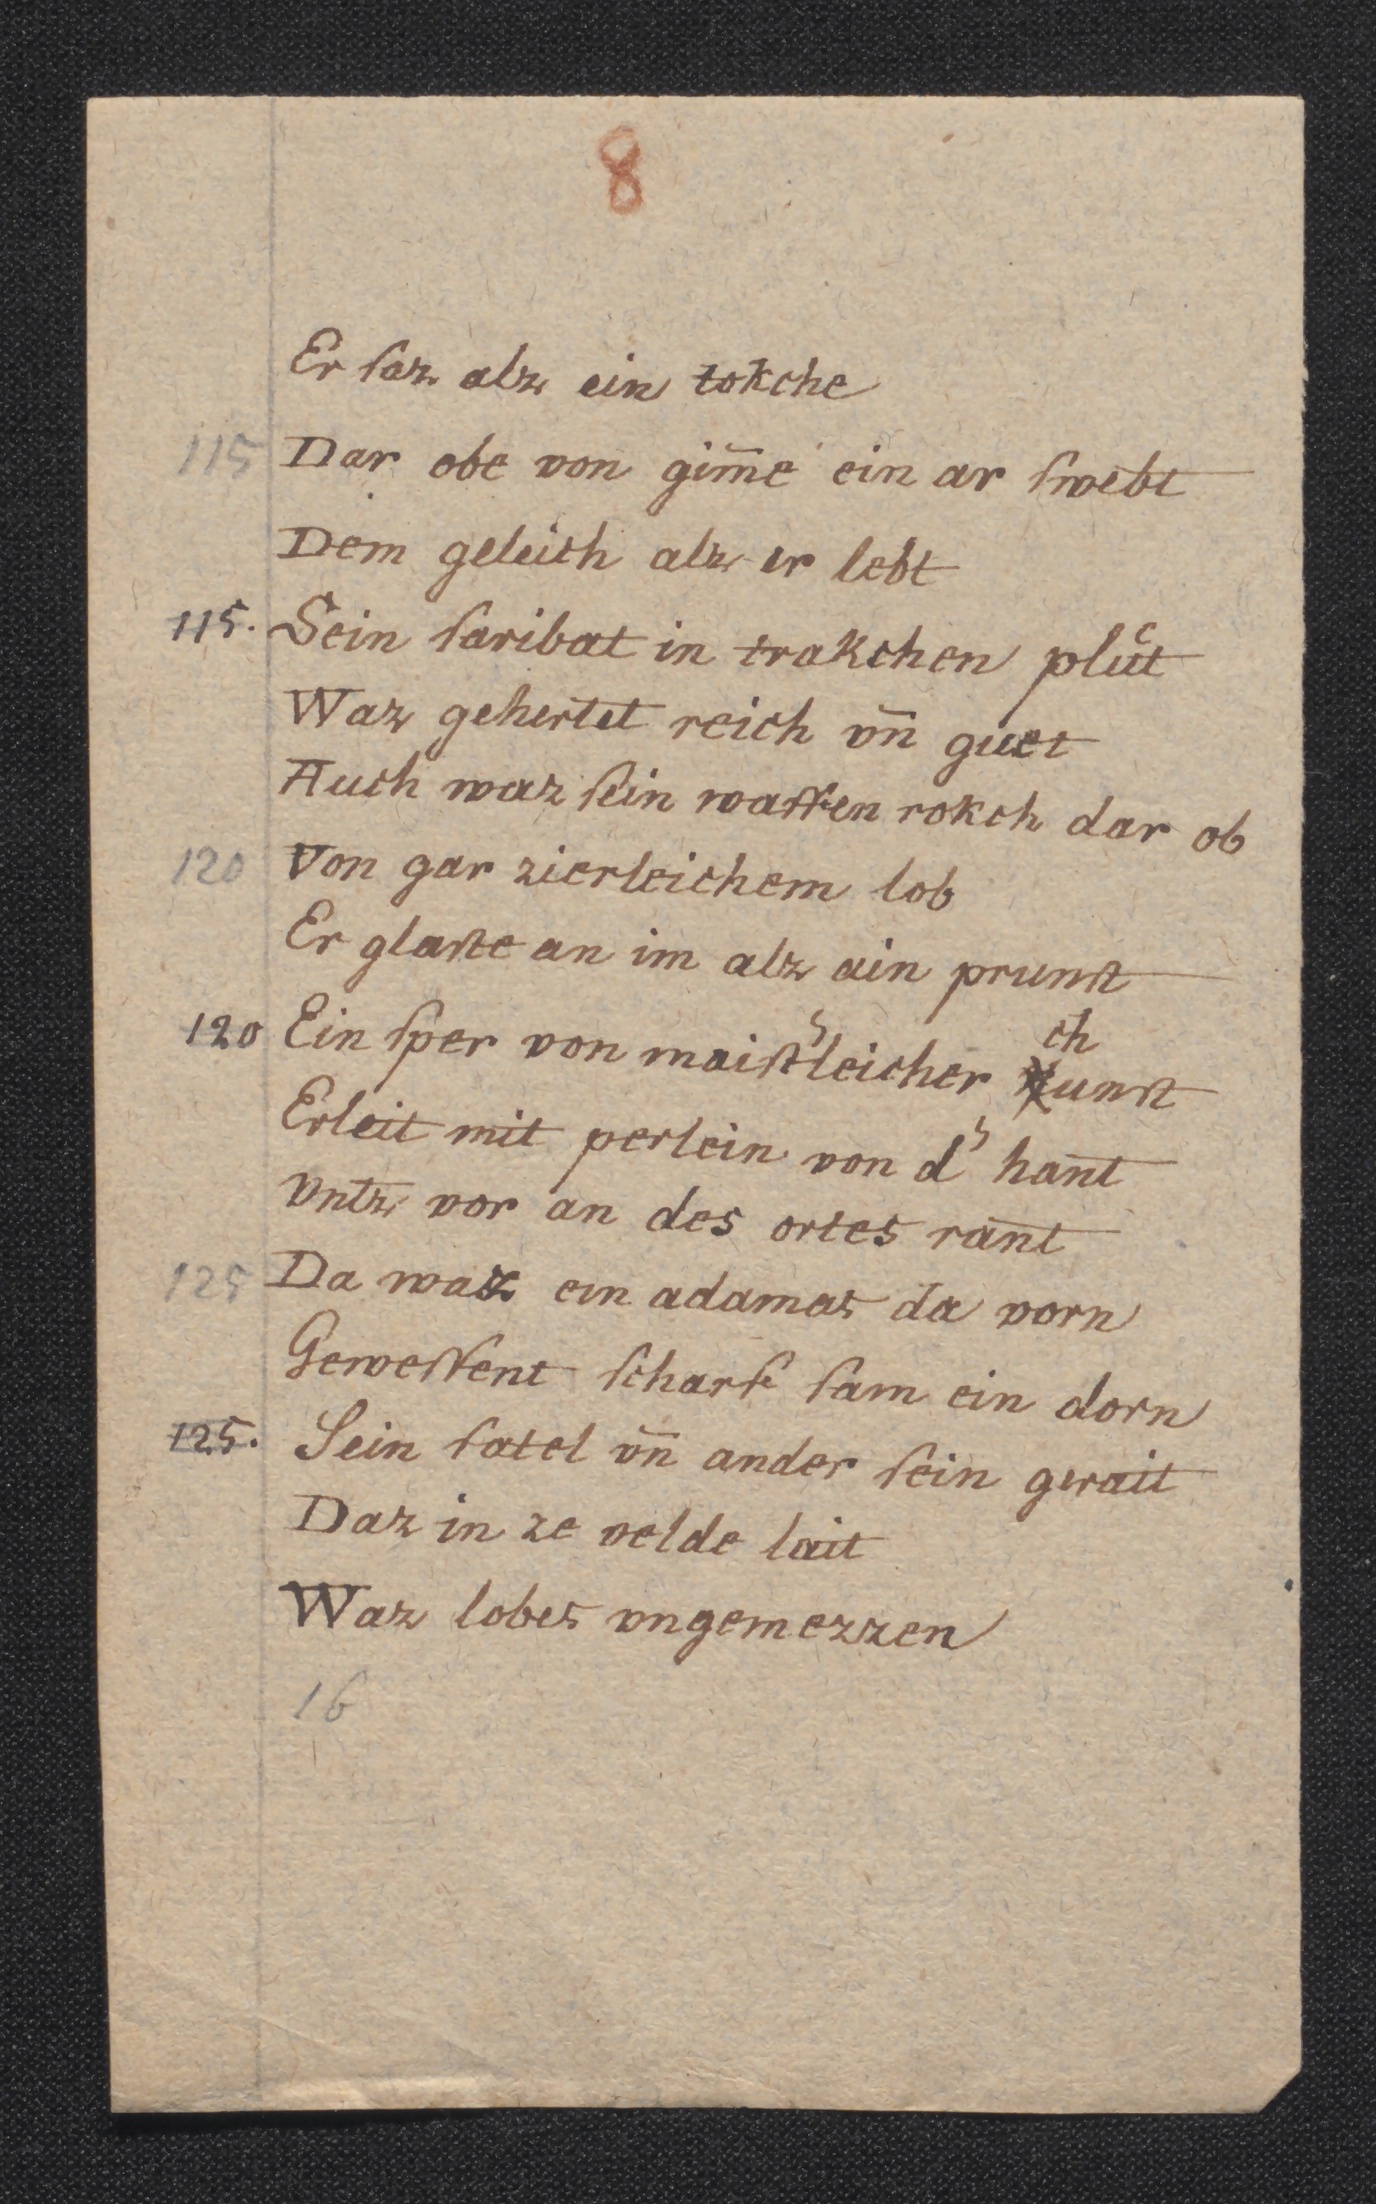 8
Er ſaz alz ein tokche
115 Dar obe von gim̄e ein ar ſwebt
Dem geleich alz er lebt
115. Sein ſaribat in trakchen plůt
Waz gehertet reich vn̄ guet
Auch waz ſein waffen rokch dar ob
120 Von gar zierleichem lob
Er glaſte an im alz ain prunſt
120 Ein ſper von maiſt'leicher chunſt
Erleit mit perlein von d' hant
Vntz vor an des ortes rant
125 Da waz ein adamas da vorn
Geweffent ſcharf ſam ein dorn
125. Sein ſatel vn̄ ander ſein gerait
Daz in ze velde lait
Waz lobes vngemezzen
16